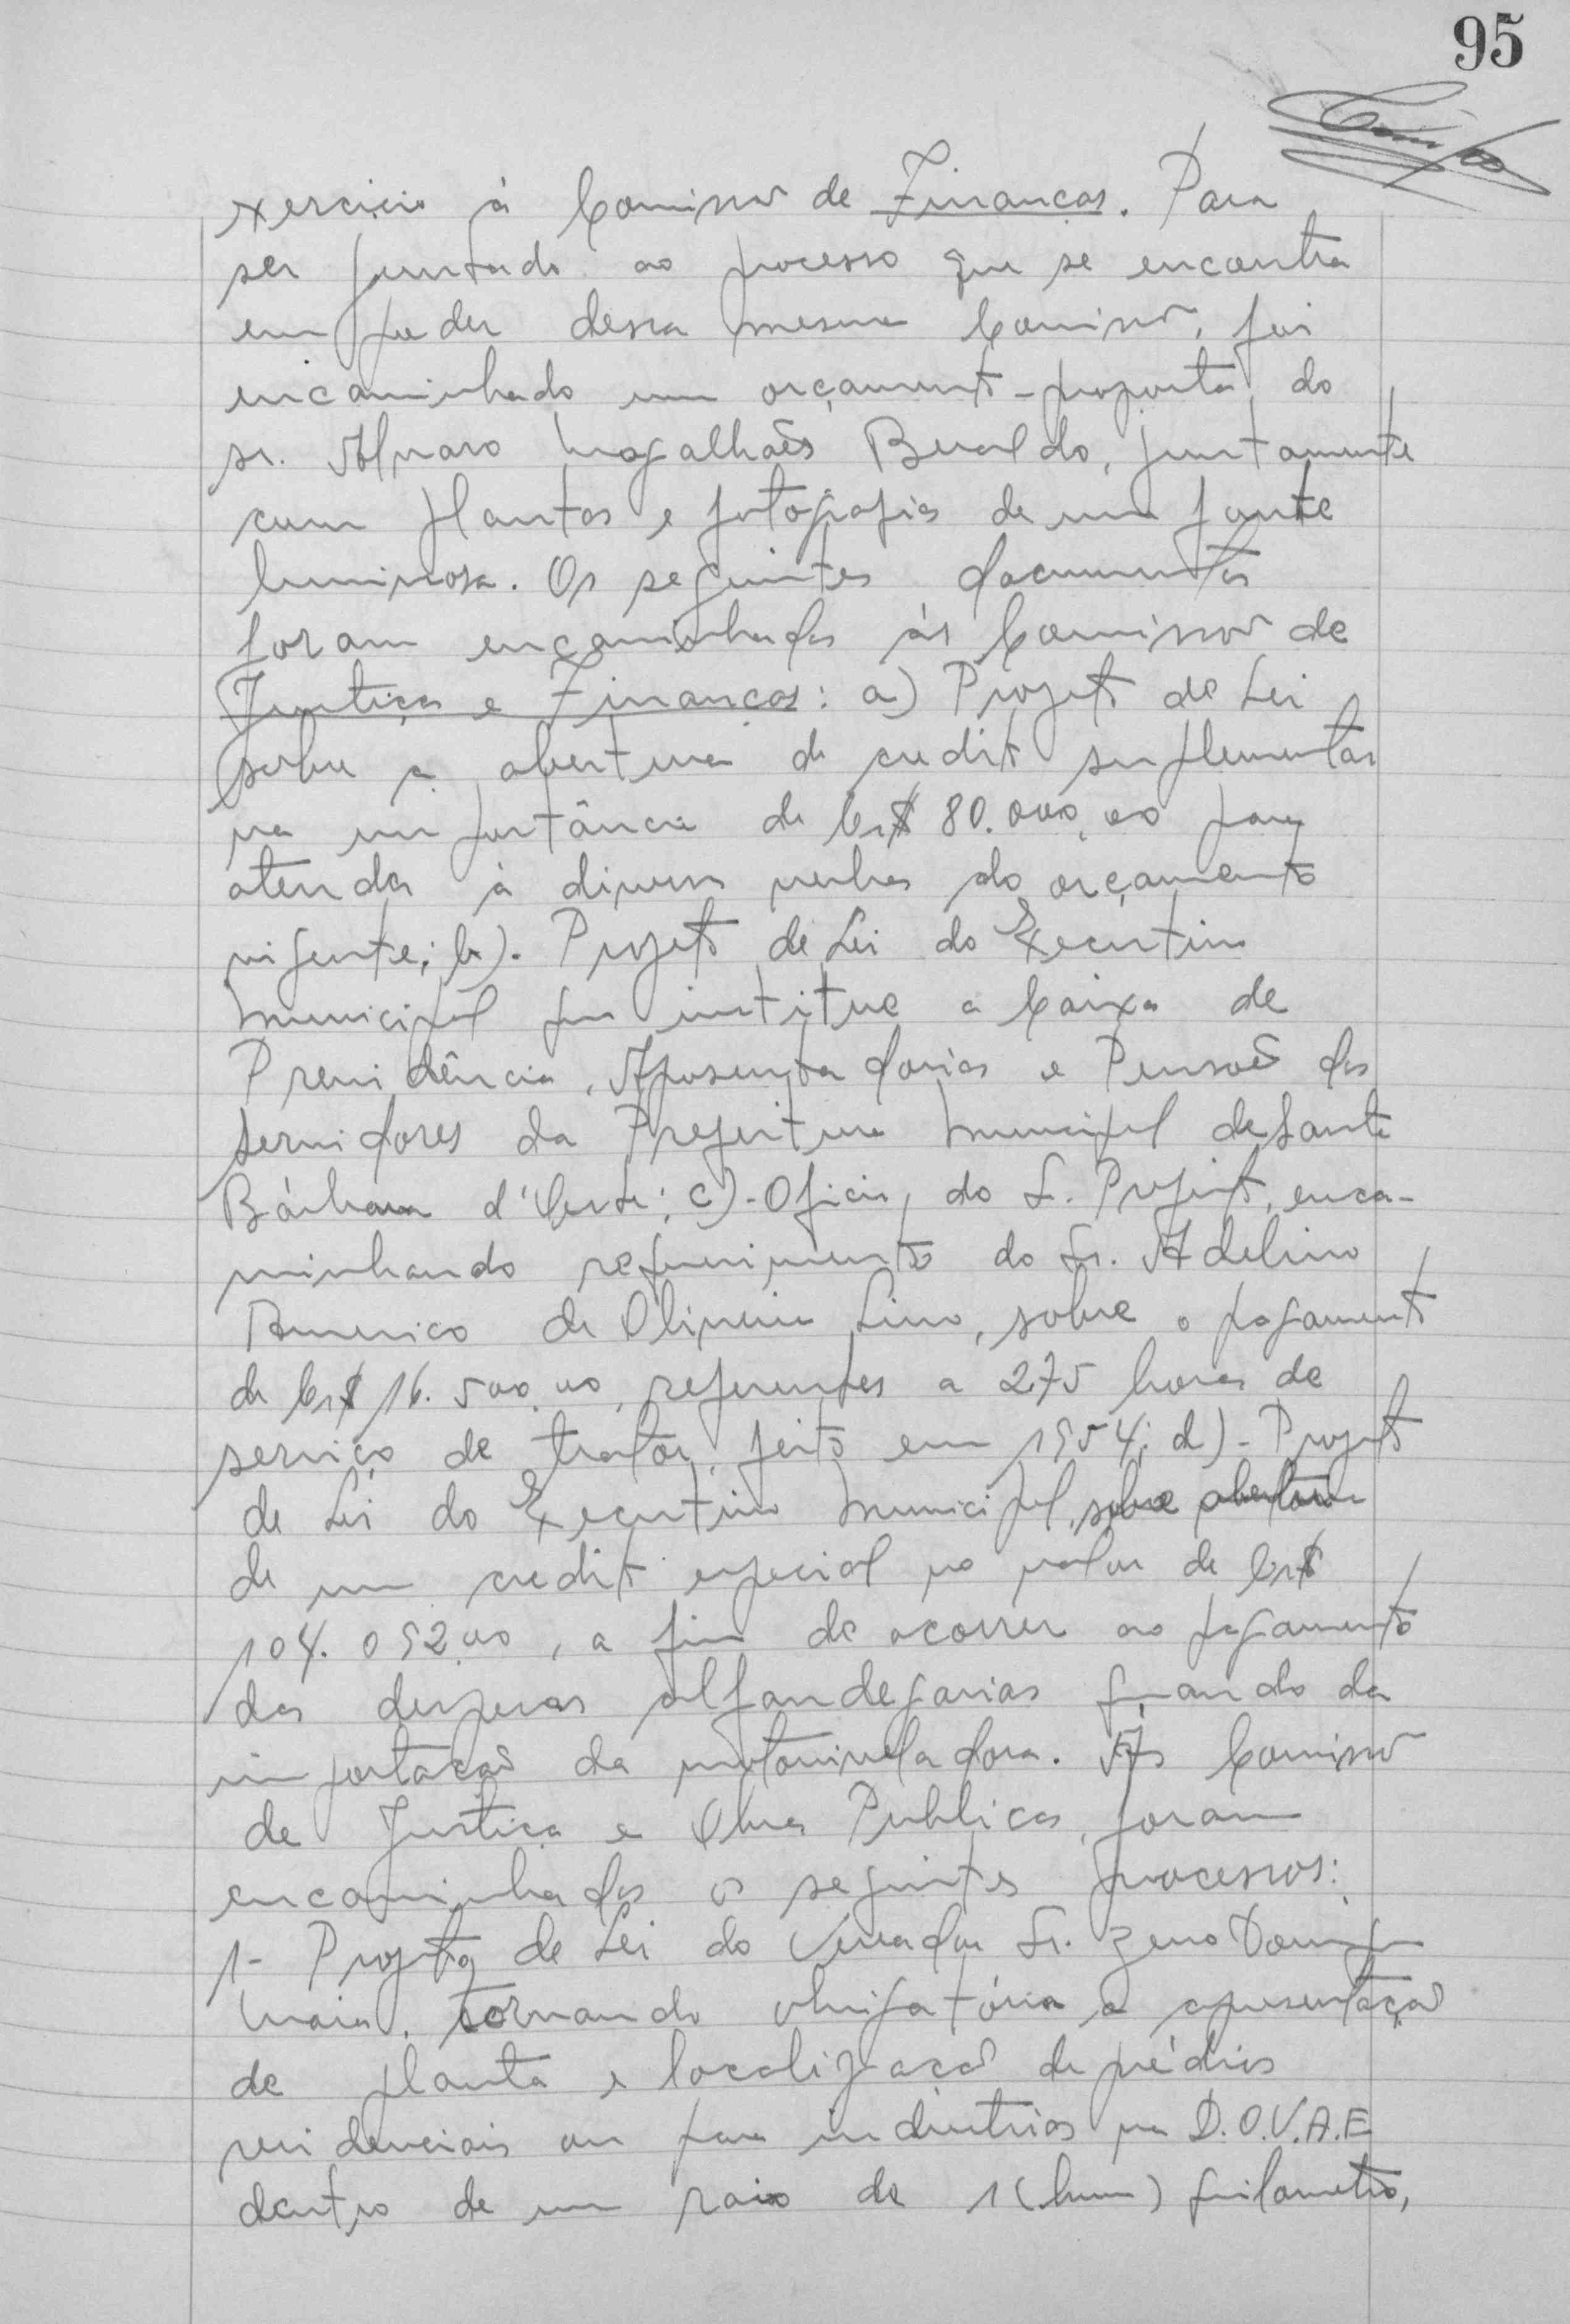 95
exercicio á Comissão de Financas. Para
ser juntado ao processo que se encontra
em poder dessa mesma Comissão, foi
encaminhado um orçamento-proposta do
sr. Alvaro Magalhães Beraldo, juntamente
com plantas e fotografias de uma fonte
luminosa. Os seguintes documentos
foram encaminhados ás Comissões de
Justiça e Financas: a) Projeto de Lei
sobre a abertura de credito suplementar
na importância de Cr$ 80.000,00 para
atender á diversas verbas do orçamento
vigente; b).- Projeto de Lei do Executivo
Municipal que institue a Caixa de
Previdência, Aposentadorias e Pensões dos
servidores da Prefeitura Municipal de Santa
Bárbara d'Oeste; c)-Oficio, do S. Prefeito, enca-
minhando requerimento do Sr. Adelino
Americo de Oliveira Lino, sobre o pagamento
de Cr$ 16.500,00, referentes a 275 horas de
serviço de trator, feito em 1954; d)- Projeto
de Lei do Executivo Municipal, sobre abertura
de um credito especial no valor de Cr$
104.052,00, a fim de acorrer ao pagamento
das despesas alfandegarias quando da
importação da motoniveladora. Ás Comissões
de Justiça e Obras Publicas, foram
encaminhados os seguintes processos:
1- Projeto de Lei do Vereador Sr. Zeno Domingos
Maia, tornando obrigatória a apresentação
de planta e localização de prédios
residenciais ou para indústrias na D.O.V.A.E
dentro de um raio de 1 (hum) quilometro,